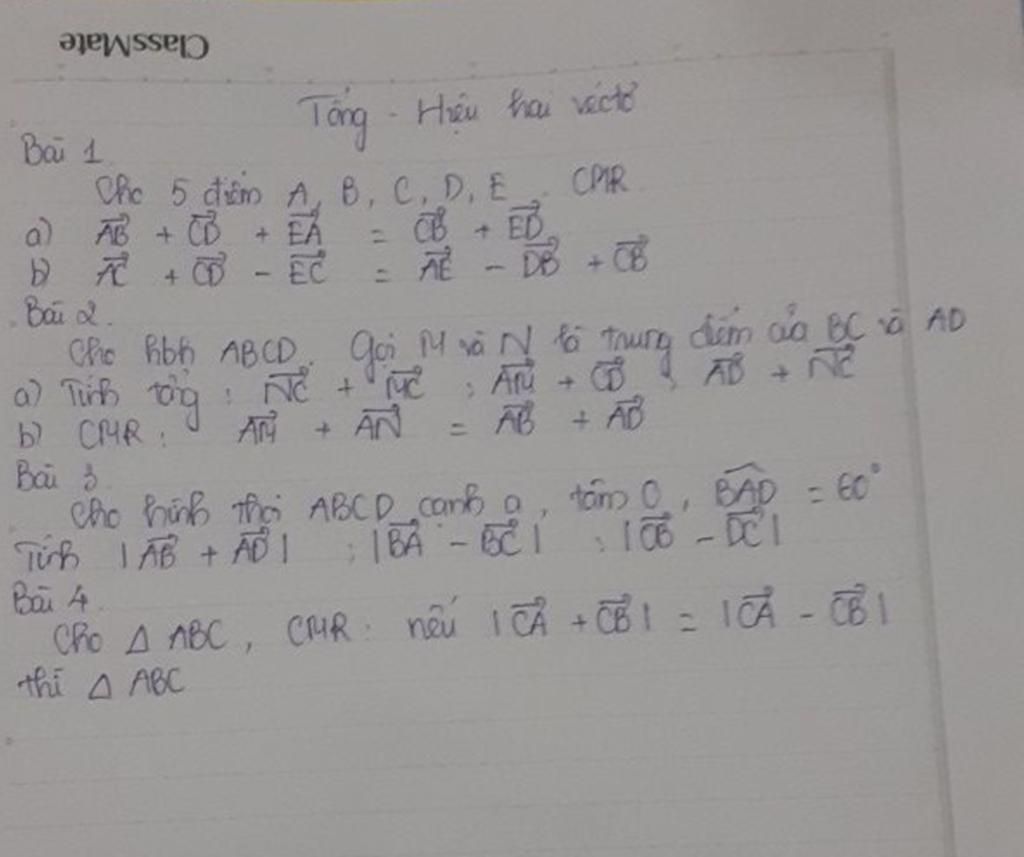 ClassMate
Tổng - Hiệu hai véctơ
Bài 1
Cho 5 điểm A, B, C, D, E. CMR
a) \overrightarrow{AB} + \overrightarrow{CD} + \overrightarrow{EA} = \overrightarrow{CB} + \overrightarrow{ED}
b) \overrightarrow{AC} + \overrightarrow{CD} - \overrightarrow{EC} = \overrightarrow{AE} - \overrightarrow{DB} + \overrightarrow{CB}
Bài 2.
Cho hbh ABCD. Gọi M và N là trung điểm của BC và AD
a) Tính tổng : \overrightarrow{NC} + \overrightarrow{MC} ; \overrightarrow{AM} + \overrightarrow{CD} ; \overrightarrow{AD} + \overrightarrow{NC}
b) CMR : \overrightarrow{AM} + \overrightarrow{AN} = \overrightarrow{AB} + \overrightarrow{AD}
Bài 3
Cho hình thoi ABCD cạnh a, tâm O, \widehat{BAD} = 60°
Tính |\overrightarrow{AB} + \overrightarrow{AD}| ; |\overrightarrow{BA} - \overrightarrow{BC}| ; |\overrightarrow{OB} - \overrightarrow{DC}|
Bài 4.
Cho Δ ABC, CMR : nếu |\overrightarrow{CA} + \overrightarrow{CB}| = |\overrightarrow{CA} - \overrightarrow{CB}|
thì Δ ABC